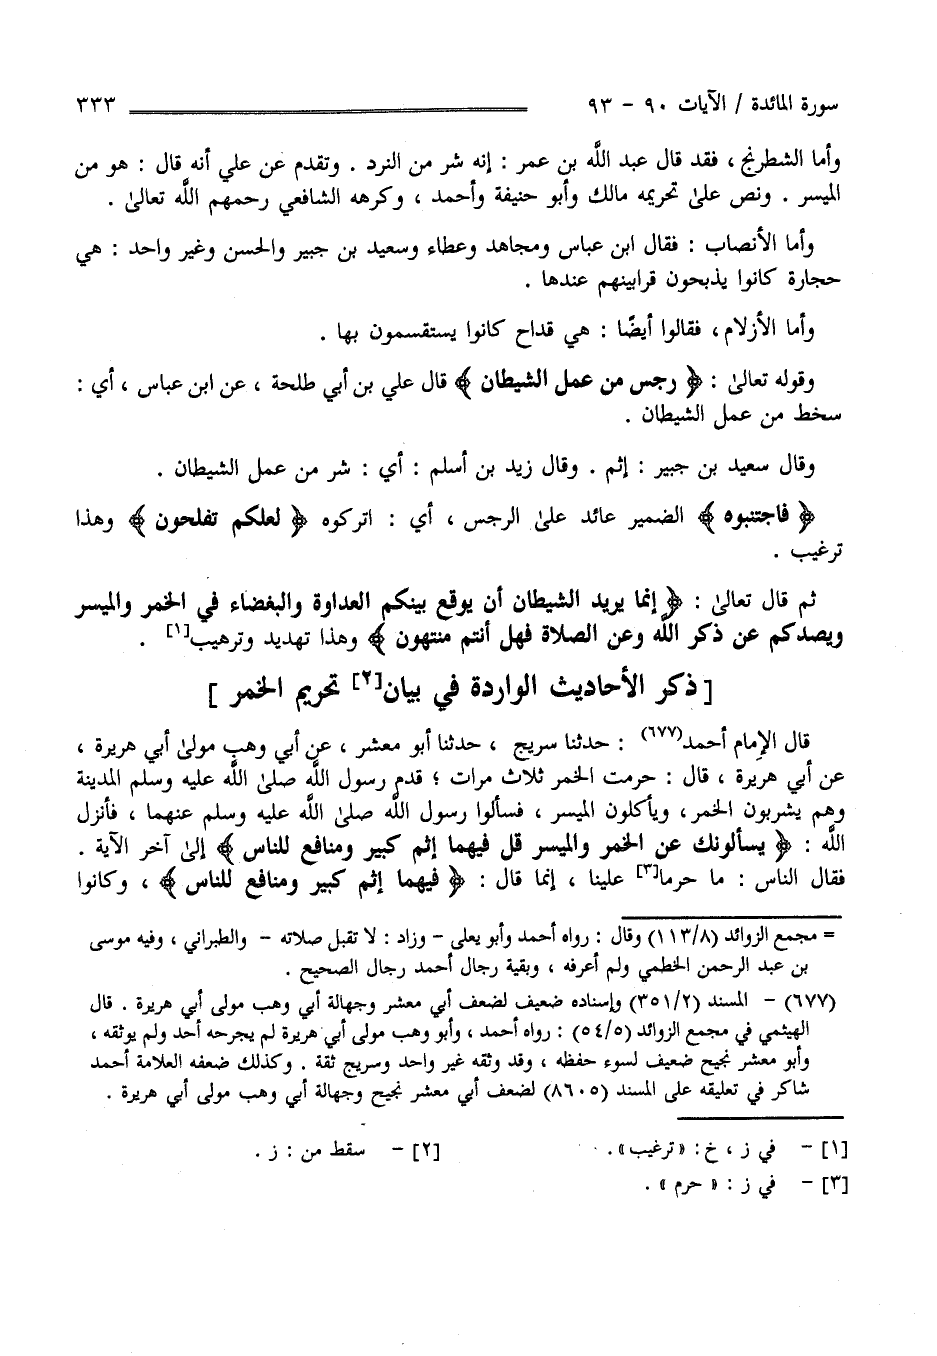 سورة المائدة / الآيات ٩٠ - ٩٣ ٣٣٣
وأما الشطرنج ، فقد قال عبد اللَّه بن عمر : إنه شر من النرد . وتقدم عن علي أنه قال : هو من
الميسر . ونص علىٰ تحريمه مالك وأبو حنيفة وأحمد ، وكرهه الشافعي رحمهم اللَّه تعالىٰ .
وأما الأنصاب : فقال ابن عباس ومجاهد وعطاء وسعيد بن جبير والحسن وغير واحد : هي
حجارة كانوا يذبحون قرابينهم عندها .
وأما الأزلام ، فقالوا أيضًا : هي قداح كانوا يستقسمون بها .
وقوله تعالىٰ : ﴿ رجس من عمل الشيطان ﴾ قال علي بن أبي طلحة ، عن ابن عباس ، أي :
سخط من عمل الشيطان .
وقال سعيد بن جبير : إثم . وقال زيد بن أسلم : أي : شر من عمل الشيطان .
﴿ فاجتنبوه ﴾ الضمير عائد علىٰ الرجس ، أي : اتركوه ﴿ لعلكم تفلحون ﴾ وهذا
ترغيب .
ثم قال تعالىٰ : ﴿ إنما يريد الشيطان أن يوقع بينكم العداوة والبغضاء في الخمر والميسر
ويصدكم عن ذكر اللَّه وعن الصلاة فهل أنتم منتهون ﴾ وهذا تهديد وترهيب[١] .
[ ذكر الأحاديث الواردة في بيان[٢] تحريم الخمر ]
قال الإمام أحمد(٦٧٧) : حدثنا سريج ، حدثنا أبو معشر ، عن أبي وهب مولىٰ أبي هريرة ،
عن أبي هريرة ، قال : حرمت الخمر ثلاث مرات ؛ قدم رسول اللَّه صلىٰ اللَّه عليه وسلم المدينة
وهم يشربون الخمر ، ويأكلون الميسر ، فسألوا رسول اللَّه صلىٰ اللَّه عليه وسلم عنهما ، فأنزل
اللَّه : ﴿ يسألونك عن الخمر والميسر قل فيهما إثم كبير ومنافع للناس ﴾ إلىٰ آخر الآية .
فقال الناس : ما حرما[٣] علينا ، إنما قال : ﴿ فيهما إثم كبير ومنافع للناس ﴾ ، وكانوا
= مجمع الزوائد (١١٣/٨) وقال : رواه أحمد وأبو يعلى - وزاد : لا تقبل صلاته - والطبراني ، وفيه موسى
بن عبد الرحمن الخطمي ولم أعرفه ، وبقية رجال أحمد رجال الصحيح .
(٦٧٧) - المسند (٣٥١/٢) وإسناده ضعيف لضعف أبي معشر وجهالة أبي وهب مولى أبي هريرة . قال
الهيثمي في مجمع الزوائد (٥٤/٥) : رواه أحمد ، وأبو وهب مولى أبي هريرة لم يجرحه أحد ولم يوثقه ،
وأبو معشر نجيح ضعيف لسوء حفظه ، وقد وثقه غير واحد وسريج ثقة . وكذلك ضعفه العلامة أحمد
شاكر في تعليقه على المسند (٨٦٠٥) لضعف أبي معشر نجيح وجهالة أبي وهب مولى أبي هريرة .
[١] - في ز ، خ : «ترغيب» . [٢] - سقط من : ز .
[٣] - في ز : « حرم » .